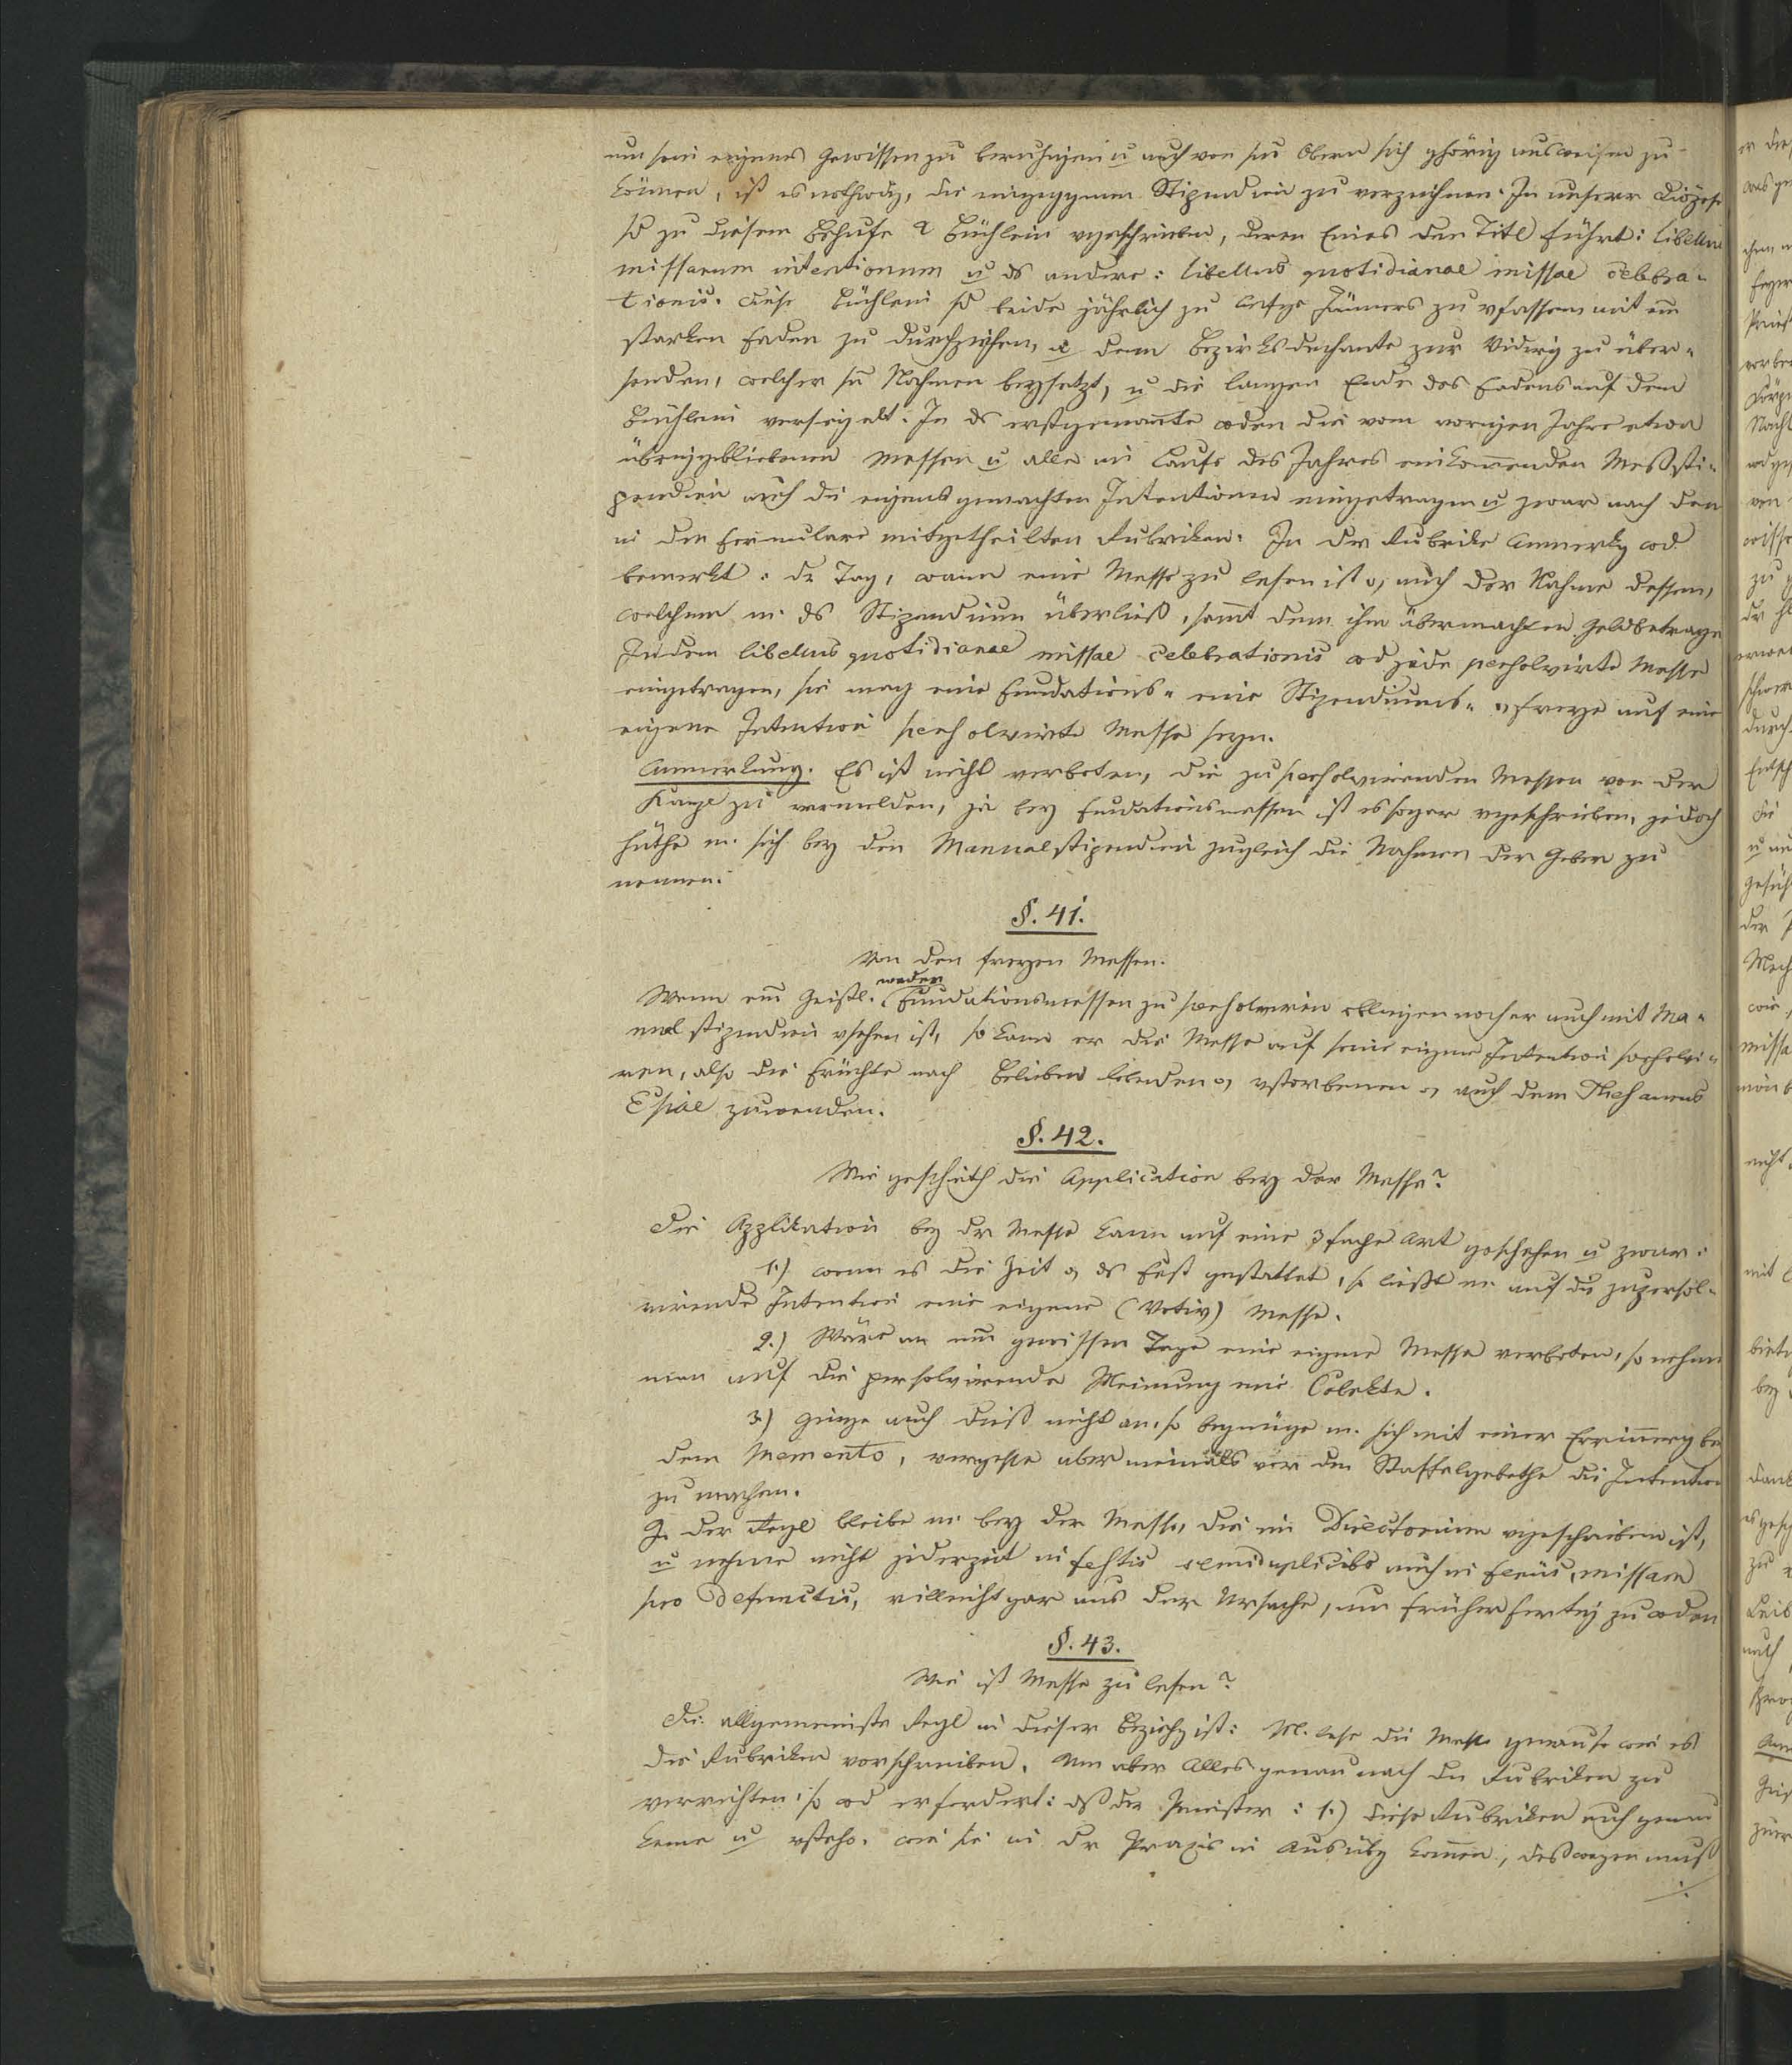 um sein eigenes Gewissen zu beruhigen u auch von sn Obern sich ghörig ausweisen zu
können, ist es nothwdg, die eingegganen Stipendien zu verzeichnen. In unserer Diözese
sd zu diesem Behufe 2 Büchlein vgeschrieben, deren Eines den Titl führt: libellus
missarum intentionum u ds andere: libellus quotidianae missae celebra-
tionis. Diese Büchlein sd beide jährlich zu Anfge Jänners zu vfassen mit em
starken Faden zu durchziehen, u dem Bezirksdechante zur Vidirg zu über-
senden, welcher sn Nahmen beysetzt, u die langen Ende des Fadens auf dem
Büchlein versiegelt. In ds erstgenannte wden die vom vorigen Jahre etwa
übriggebliebenen Messen u alle im Laufe des Jahres einkommenden Meßsti-
pendien auch die eigens gemachten Intentionen eingetragen u zwar nach den
in dem Formulare mitgetheilten Rubriken. In der Rubrike Anmerkg wd
bemerkt: dr Tag, wann eine Messe zu lesen ist o, auch der Nahme dessen,
welchem m. ds Stipendium überließ, samt dem ihm übermachten Geldbetrage
In dem libellus quotidianae missae celebrationis wd jede persolvirte Messe
eingetragen, sie mag eine Fundations- eine Stipendiums- o, freye auf eine
eigene Intention persolvirte Messe seyn.
Anmerkung. Es ist nicht verboten, die zu persolvirenden Messen von der
Kanzl zu vermelden, ja bey Fundationsmessen ist es sogar vgeschrieben, jedoch
hüthe m. sich bey den Manualstipendien zugleich die Nahmen der Geber zu
nennen.
§. 41.
Von den freyen Messen.
weder
Wenn em Geistl. Fundationsmessen zu persolviren obliegen noch er auch mit Ma-
nualstipendien vsehen ist, so kann er die Messe auf seine eigene Intention persolvi-
ren, also die Früchte nach Belieben Lebenden o, vstorbenen o, auch dem Thesaurus
Esiae zuwenden.
§. 42.
Wie geschieth die Application bey der Messe?
Die Applikation bey dr Messe kann auf eine 3fache Art geschehen u zwar:
1.) wenn es die Zeit o, ds Fest gestattet, so ließt m. auf die zu persol-
virende Intention eine eigene (Votiv) Messe.
2.) Wäre an em gewissen Tage eine eigene Messe verboten, so nehme
man auf die persolvirende Meinung eine Colekte.
3.) Ginge auch dieß nicht an, so begnüge m. sich mit einer Erinnerg bey
dem Memento, vergesse aber niemals vor dem Staffelgebethe die Intention
zu machen.
In der Regl bleibe m. bey der Messe, die im Directorium vgeschrieben ist,
u nehme nicht jederzeit in festis semiduplicibs auch in feriis, missam
pro Defunctis, villeicht gar aus der Ursache, um früher fertig zu wden
§. 43.
Wie ist Messe zu lesen?
Die allgemeinste Regl in dieser Beziehg ist: M. lese die Messe genauso wie es
die Rubriken vorschreiben. Um aber Alles genau nach den Rubriken zu
verrichten, so wd erfordert: dß der Priester: 1.) diese Rubriken auch genau
kenne u vstehe, wie sie in dr Praxis in Ausübg kommen, deßwegen muß